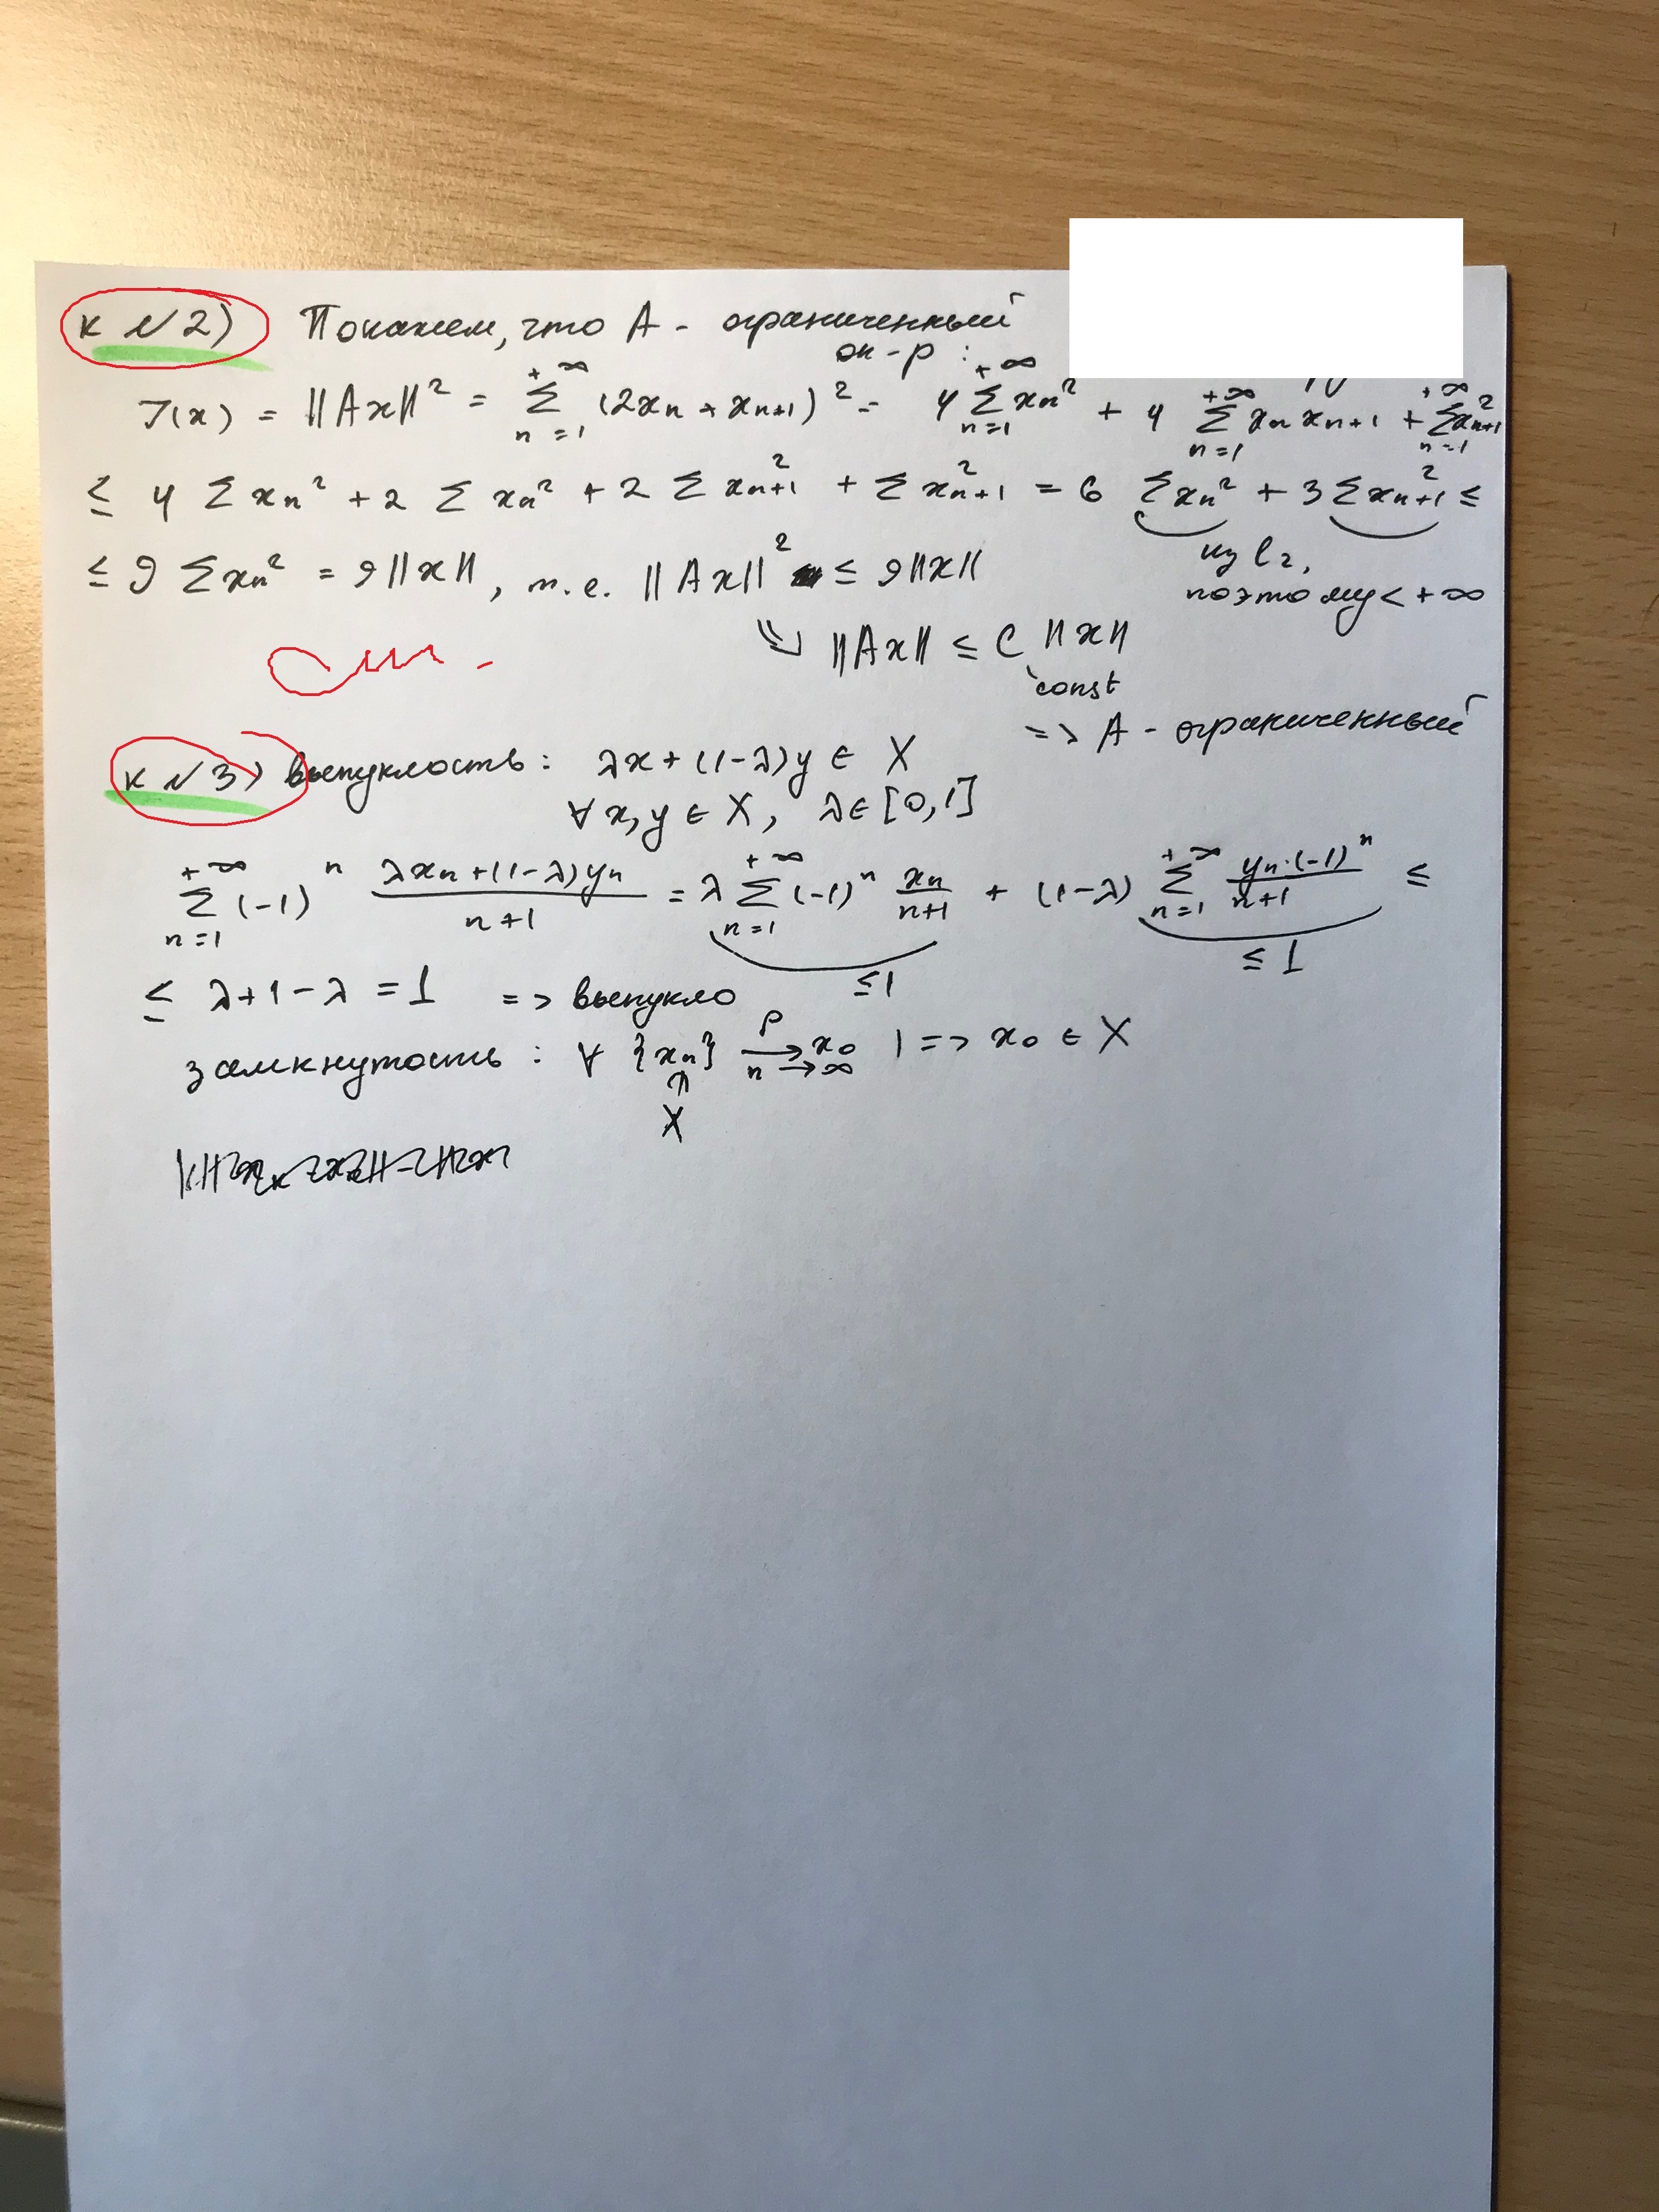 к №2) Покажем, что A - ограниченный
оп-р :
J(x) = ||Ax||² = +∞ Σ n=1 (2xn + xn+1)² = 4 +∞ Σ n=1 xn² + 4 +∞ Σ n=1 xn xn+1 + +∞ Σ n=1 x²n+1
≤ 4 Σ xn² + 2 Σ xn² + 2 Σ x²n+1 + Σ x²n+1 = 6 Σ xn² + 3 Σ x²n+1 ≤
из l2,
поэтому < +∞
≤ 9 Σ xn² = 9||x||, т.е. ||Ax||² ≤ 9||x||
⇓ ||Ax|| ≤ C ||x||
const
=> A - ограниченный
к №3) выпуклость: λx + (1-λ)y ∈ X
∀ x, y ∈ X, λ ∈ [0,1]
+∞ Σ n=1 (-1)^n (λxn + (1-λ)yn)/(n+1) = λ +∞ Σ n=1 (-1)^n xn/(n+1) + (1-λ) +∞ Σ n=1 yn·(-1)^n/(n+1) ≤
≤1 ≤ 1
≤ λ + 1 - λ = 1 => выпукло
замкнутость: ∀ {xn} ρ → n→∞ x0 | => x0 ∈ X
X